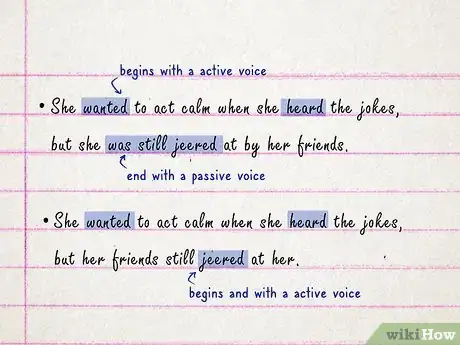 begins with a active voice
• She wanted to act calm when she heard the jokes,
but she was still jeered at by her friends.
end with a passive voice
• She wanted to act calm when she heard the jokes,
but her friends still jeered at her.
begins and with a active voice
wikiHow